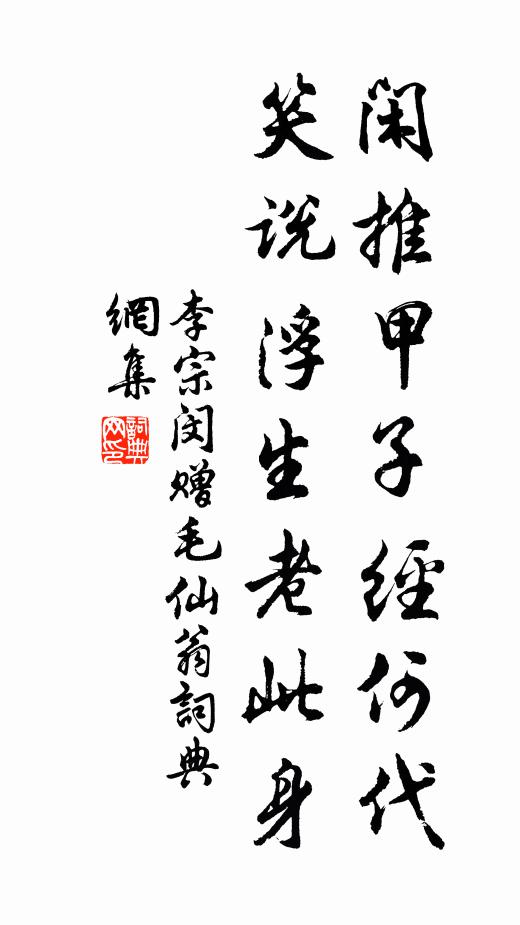 闲推甲子經何代
笑说浮生老此身
李宗闵赠毛仙翁詞典
網集
詞典
网印